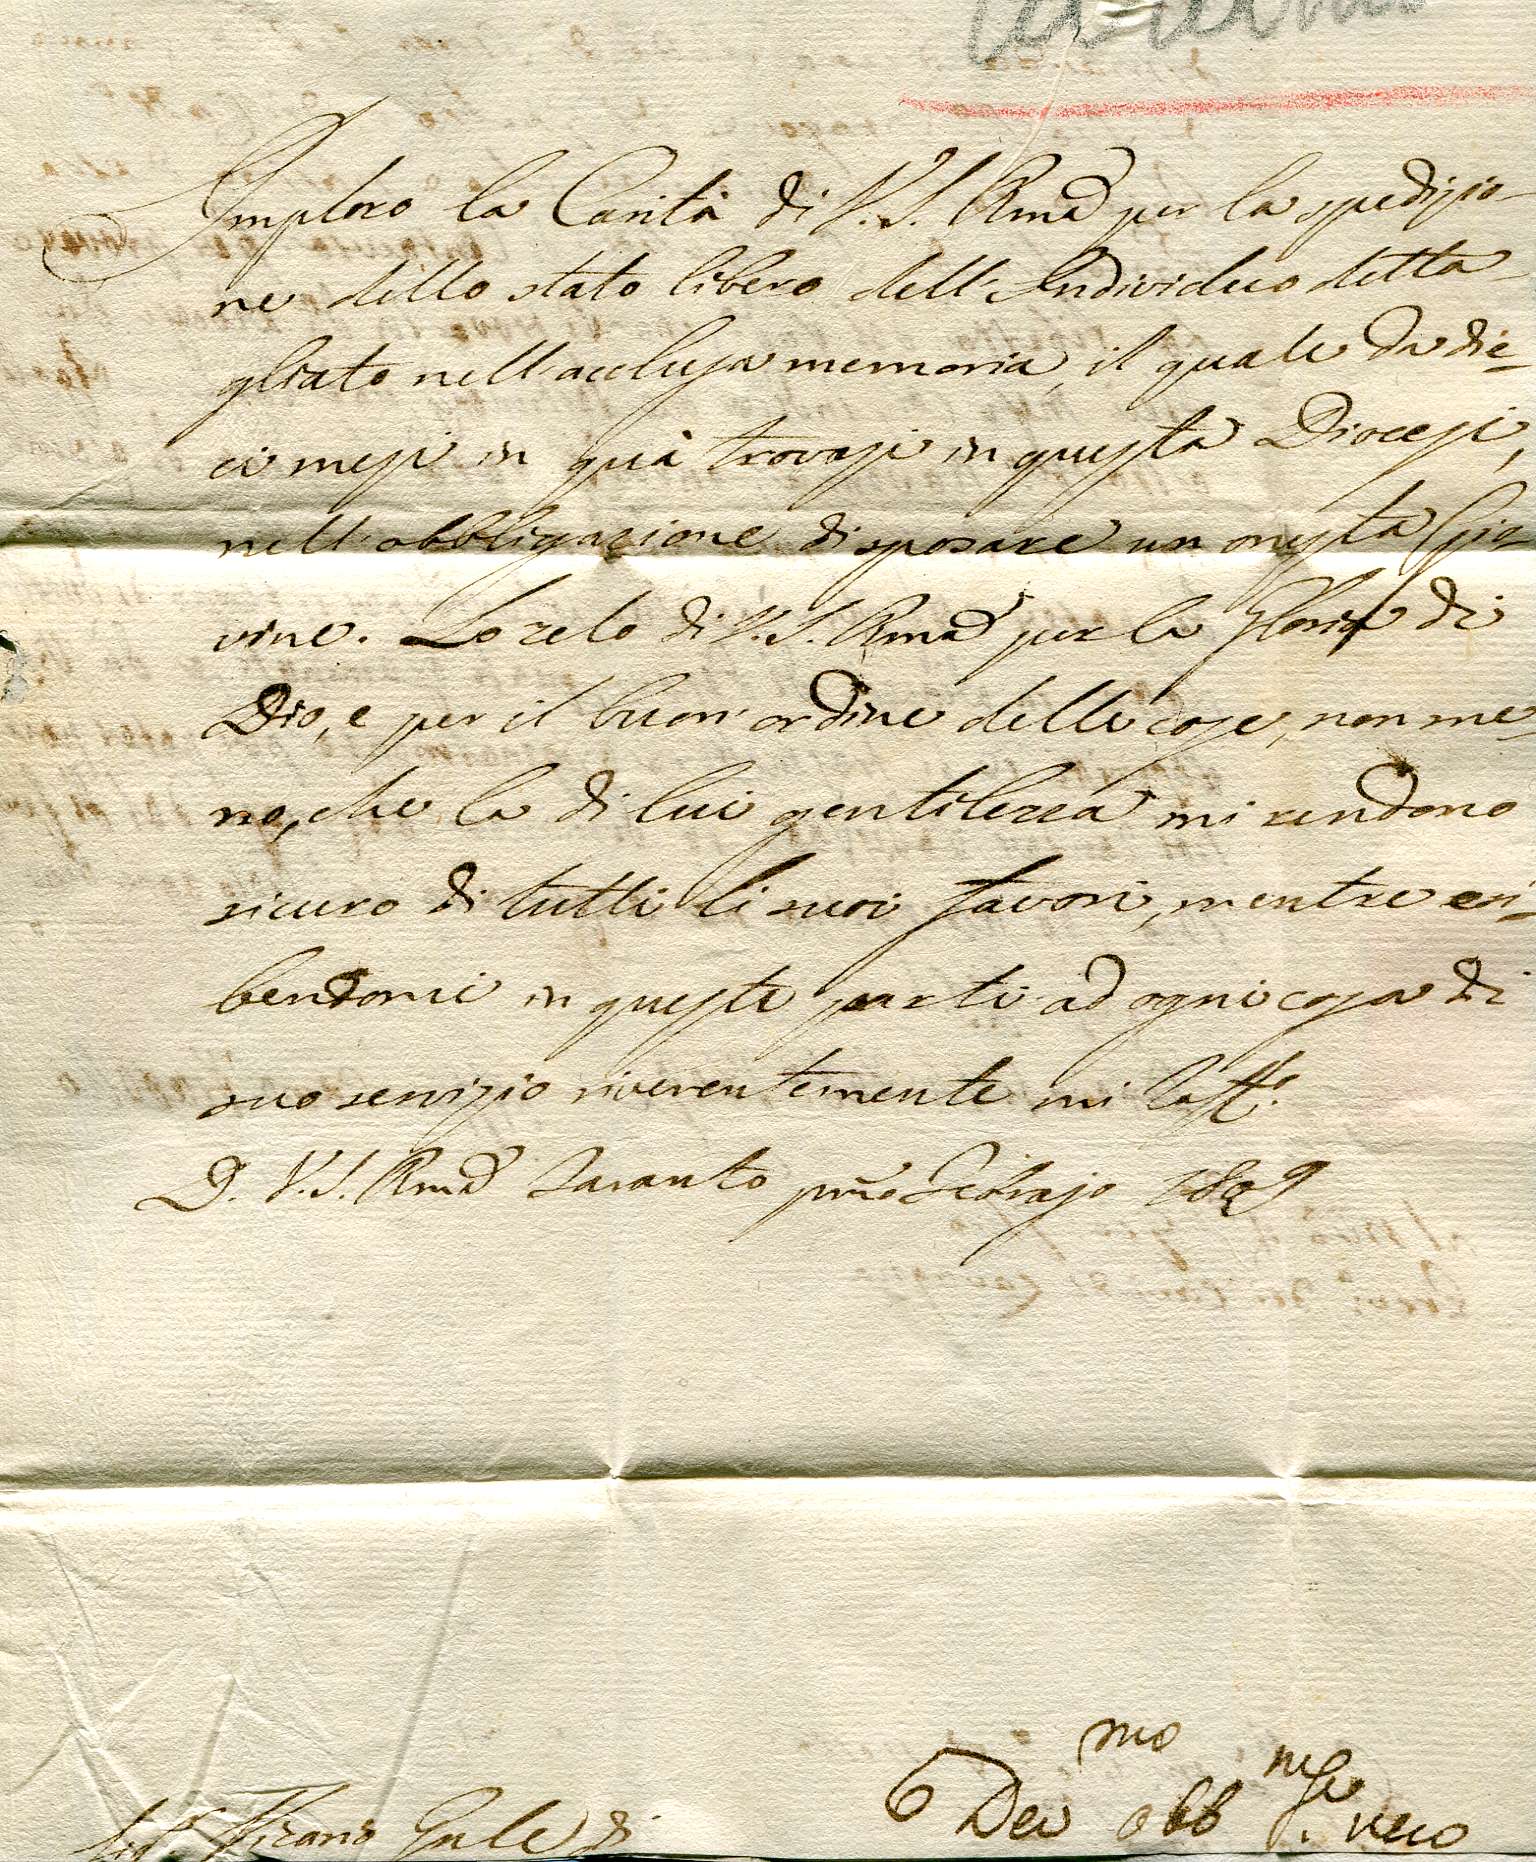 Imploro la Carità di V. S. Rma per la spedizio-
ne dello stato libero dell'Individuo detta
gliato nell'acclusa memoria, il quale da die-
ci mesi in quà trovasi in questa Diocesi,
nell'obbligazione di sposare un onesta Gio-
vine. Lo zelo di V. S. Rma per la Gloria di
Dio, e per il buon'ordine delle cose, non me-
no, che la di lui gentilezza mi rendono
sicuro di tutti li suoi favori, mentre esi-
bendomi in queste parti ad ogni cosa di
suo servizio riverentemente mi
D. V. S. Rma Taranto pmo Febrajo 1809
Devmo obb vero
Sigr Vicario Gnle di